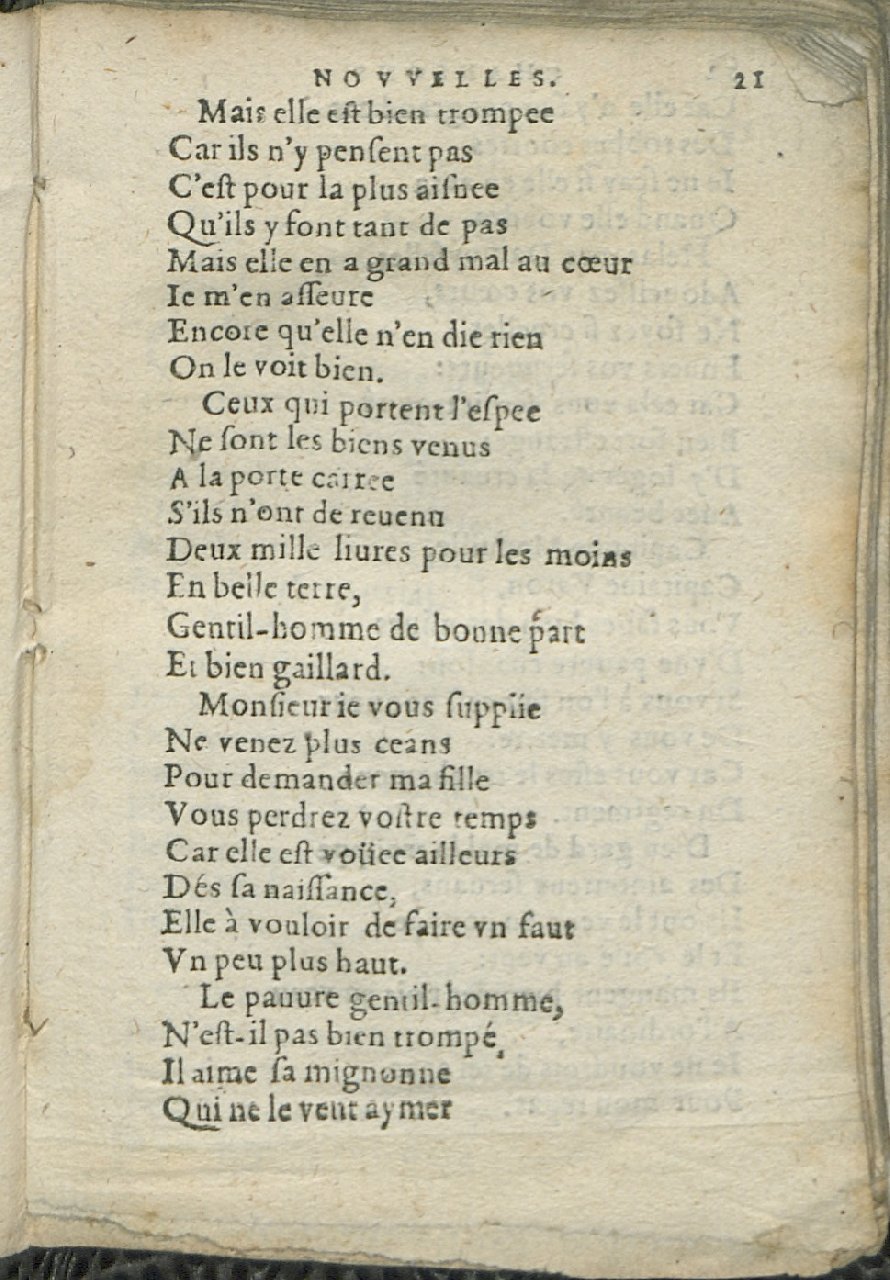 NOVVELLES. 21
Mais elle eſt bien trompee
Car ils n'y penſent pas
C'eſt pour la plus aiſnee
Qu'ils y font tant de pas
Mais elle en a grand mal au cœur
Ie m'en aſſeure
Encore qu'elle n'en die rien
On le voit bien.
Ceux qui portent l'eſpee
Ne ſont les biens venus
A la porte carree
S'ils n'ont de reuenu
Deux mille liures pour les moins
En belle terre,
Gentil-homme de bonne part
Et bien gaillard.
Monſieur ie vous ſupplie
Ne venez plus ceans
Pour demander ma fille
Vous perdrez voſtre temps
Car elle eſt voüee ailleurs
Dés ſa naiſſance,
Elle à vouloir de faire vn ſaut
Vn peu plus haut.
Le pauure gentil-homme,
N'eſt-il pas bien trompé,
Il aime ſa mignonne
Qui ne le veut aymer